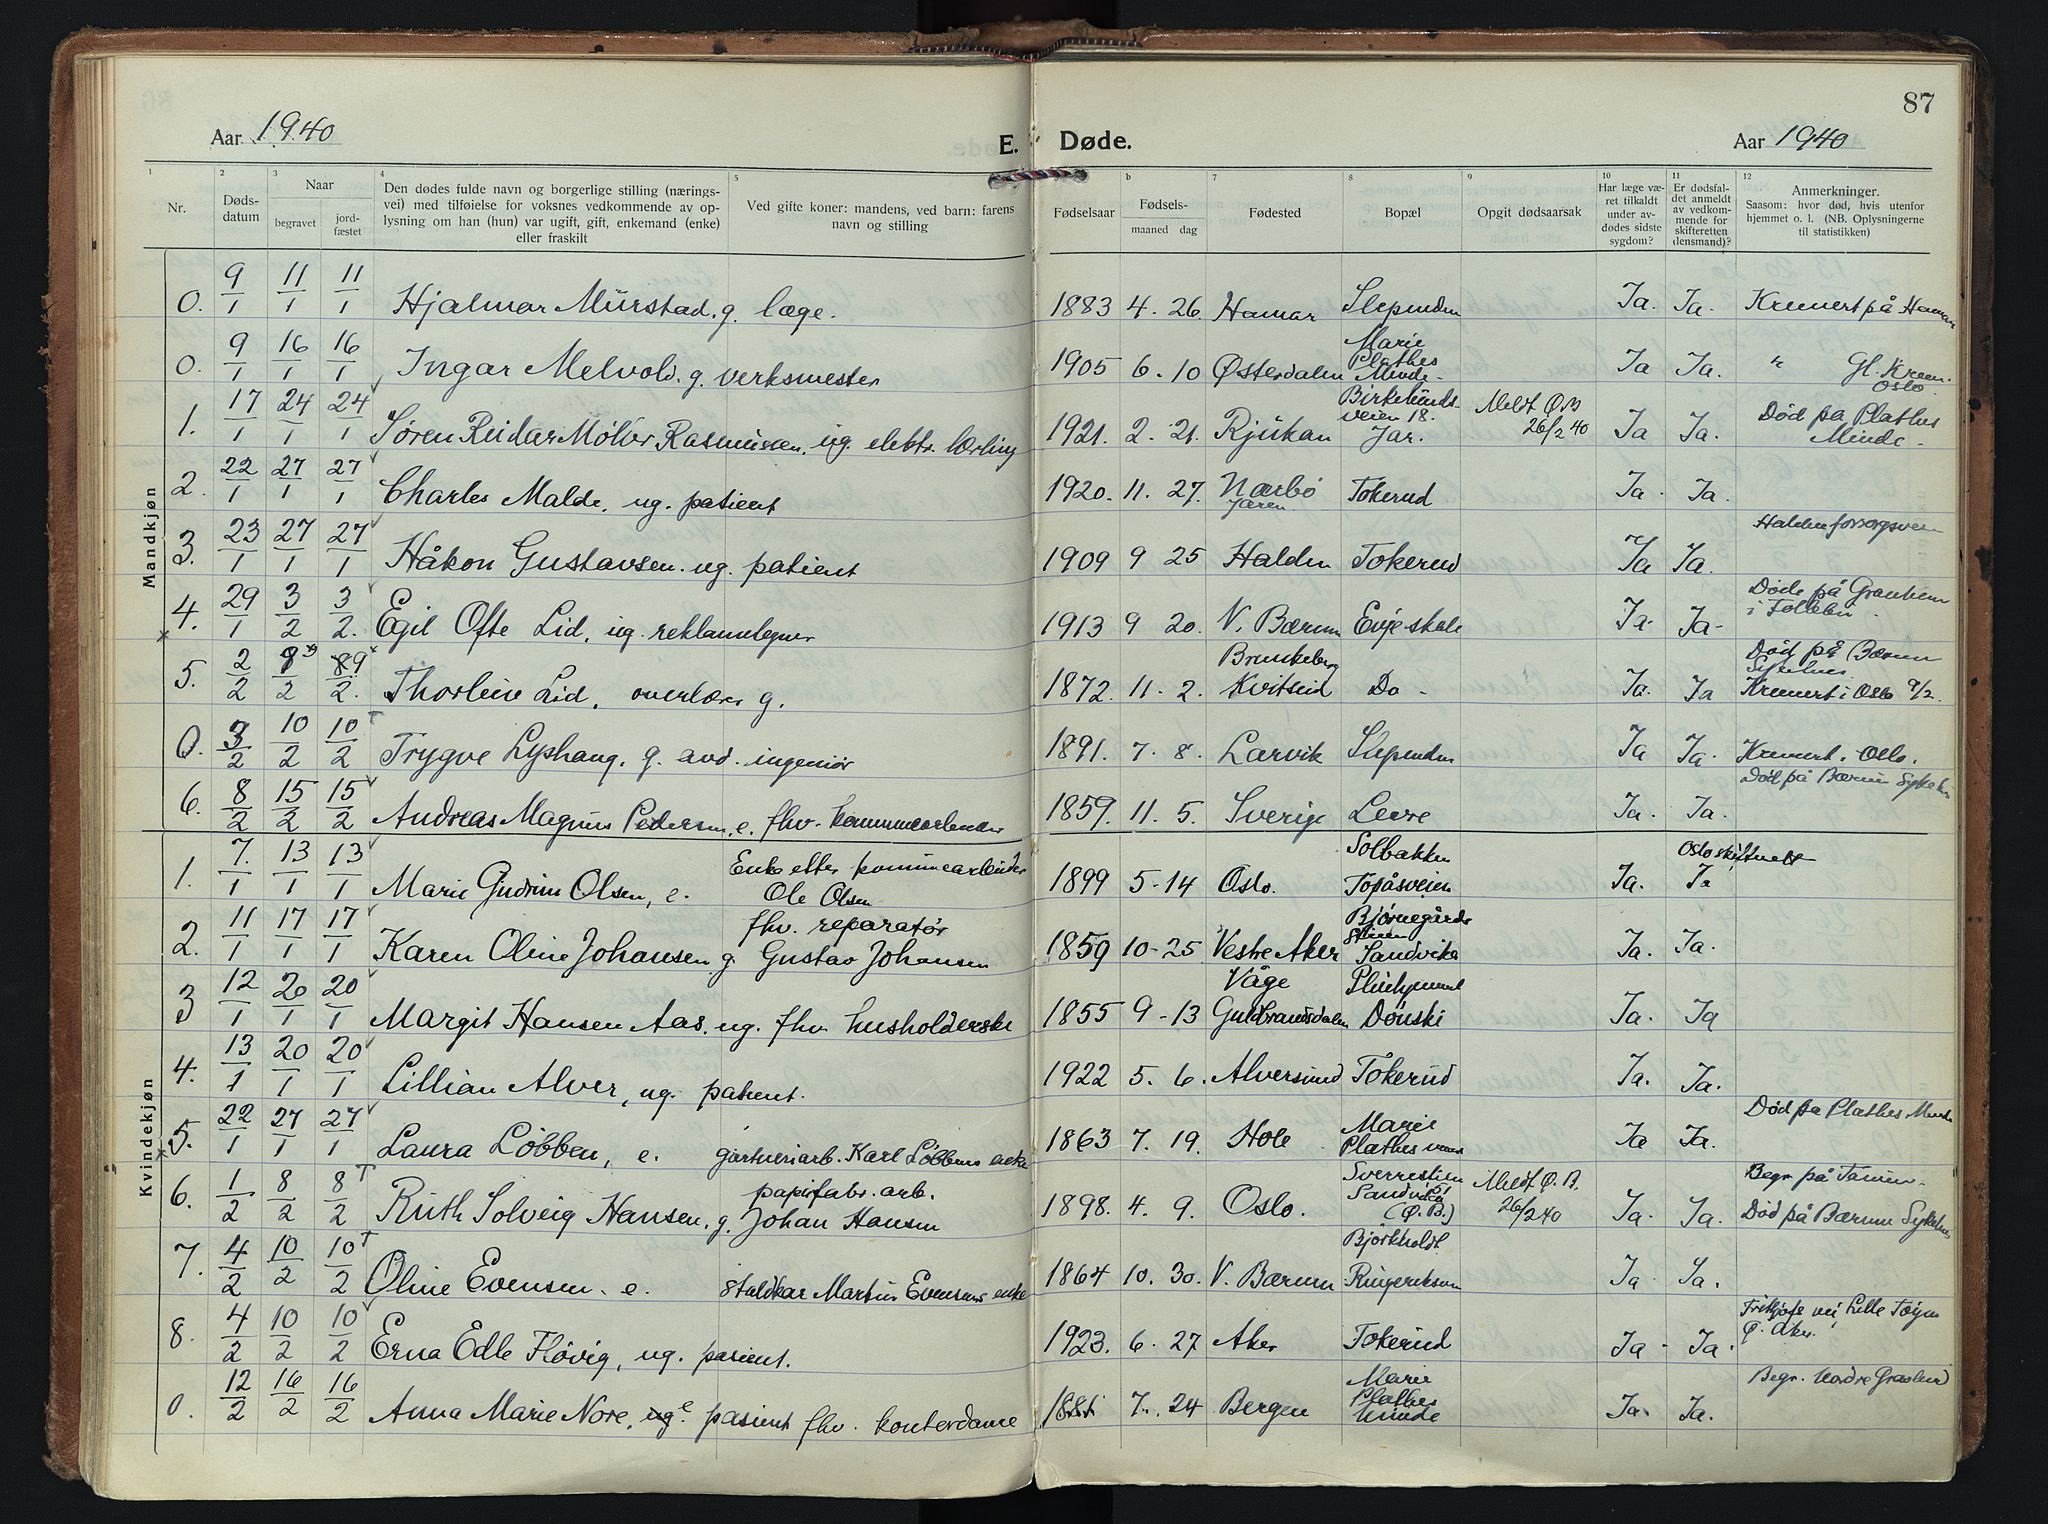 87
Aar 1940 E. Døde. Aar 1940
1 2 3 4 5 b 7 8 9 10 11 12
Nr.
Døds-
datum
Naar
begravet
jord-
fæstet
Den dødes fulde navn og borgerlige stilling (nærings-
vei) med tilføielse for voksnes vedkommende av op-
lysning om han (hun) var ugift, gift, enkemand (enke)
eller fraskilt
Ved gifte koner: mandens, ved barn: farens
navn og stilling
Fødselsaar
Fødsels-
maaned dag
Fødested
Bopæl
Opgit dødsaarsak
Har læge væ-
ret tilkaldt
under av-
dødes sidste
sygdom?
Er dødsfal-
det anmeldt
av vedkom-
mende for
skifteretten
(lensmand)?
Anmerkninger.
Saasom: hvor død, hvis utenfor
hjemmet o. l. (NB. Oplysningerne
til statistikken)
Mandkjøn
0. 9/1 11/1 11/1 Hjalmar Mürstad. g. læge. 1883 4. 26. Hamar Slependen Ja. Ja. Kremert på Hamar
0. 9/1 16/1 16/1 Ingar Melvold. g. verksmester 1905 6. 10 Østerdalen Marie
Plathes
Minde. Ja Ja. " Gl. Krem.
Oslo
1. 17/1 24/1 24/1 Søren Reidar Møller Rasmussen. ug. elektr. lærling 1921. 2. 21. Rjukan Birkelunds-
veien 18.
Jar. Meldt Ø.B
26/2 40 Ja Ja. Død på Plathes
Minde.
2. 22/1 27/1 27/1 Charles Malde, ug. patient 1920. 11. 27. Nærbø
Jæren. Tokerud Ja. Ja.
3. 23/1 27/1 27/1 Håkon Gustavsen. ug. patient 1909 9 25 Halden Tokerud Ja Ja. Halden forsorgsvesen
4. 29/1 3/2 3/2. Egil Ofte Lid, ug. reklametegner 1913 9 20. V. Bærum Evje skole Ja. Ja. Døde på Granheim
i Follebu.
5. 2/2 9/2 8 9/2. Thorleiv Lid, overlærer g. 1872. 11. 2. Brunkeberg
Kviteseid Do. Ja. Ja Død på Bærum
Sykehus
Kremert i Oslo 9/2.
0. 3/2 10/2 10/2 Trygve Lyshaug. g. avd. ingeniør 1891. 7. 8. Larvik Slependen Ja Ja. Kremert i Oslo.
6. 8/2 15/2 15/2 Andreas Magnus Pedersen, e. fhv. kommunearbeider 1859. 11. 5. Sverige Levre Ja. Ja. Død på Bærum Sykehus
Kvindekjøn
1. 7./1 13/1 13/1 Marie Gudrun Olsen, e. Enke etter kommunearbeider
Ole Olsen 1899 5-14 Oslo. Solbakken
Topåsveien Ja. Oslo skifterett
Ja
2. 11/1 17/1 17/1 Karen Oline Johansen g. fhv. reparatør
Gustav Johansen 1859 10-25 Vestre Aker Bjørnegårds
Sandvika Ja. Ja.
3 12/1 20/1 20/1 Margit Hansen Aas. ug. fhv. husholderske 1855 9-13 Våge
Gudbrandsdalen Pleiehjemmet
Dønski Ja. Ja
4. 13/1 20/1 20/1 Lillian Alver, ug. patient. 1922 5. 6. Alversund Tokerud Ja. Ja.
5. 22/1 27/1 27/1 Laura Løbben, e. gartneriarb. Karl Løbbens enke 1863 7. 19. Hole Marie
Plathes minde Ja Ja. Død på Plathes Minde
6. 1/2 8/2 8/2 Ruth Solveig Hansen. g. papirfabr. arb.
Johan Hansen 1898. 4. 9. Oslo. Sverrestien
Sandvika
(Ø.B.) Meldt Ø.B.
26/2 40 Ja. Ja. Begr. på Tanum.
Død på Bærum Sykehus
7. 4/2 10/2 10/2 Oline Evensen. e. staldkar Martin Evensens enke 1864 10. 30. V. Bærum Bjørkholdt
Ringeriksvn Ja. Ja.
8. 4/2 10/2 10/2 Erna Edle Fløvig, ug. pasient. 1923. 6. 27 Aker Tokerud Ja. Ja. Lille Tøyen
Ø. Aker.
0. 12/2 16/2 16/2 Anna Marie Nore, ug. e pasient fhv. kontordame 1881 7. 24 Bergen Marie
Plathes
minde Ja. Ja. Begr. Nordre Gravlund